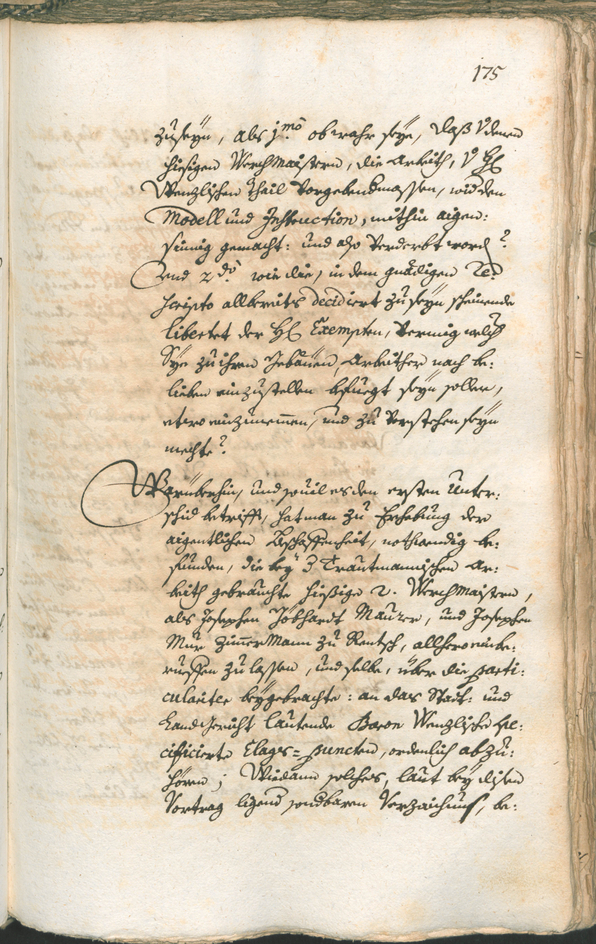 175
zuseyn, als j.mo ob wahr seye, daß Von denen
hiesigen Werchmaistern, die Arbeith, V. H.
Wenzlischen theil Vorgebendmassen, wider
Modell und Instruction, mithin aigen:
sinnig gemacht: und also Verderbt word?
Und 2.do wie die, in dem gnädigen Re:
scripto allbereits decidiert zu seyn scheinende
libertet der H. Exempten, Vermög welch
Sye zu ihren Gebäuen, Arbeither nach be:
lieben einzustellen befuegt seyn sollen,
einzunemmen, und zu Verstehen seyn
mechte?
Warüberhin, und souil es den ersten Unter:
schid betrifft, hat man zu Erhebung der
aigentlichen Beschaffenheit, nothwendig be:
funden, die bey 3 Trautmannischen Ar:
beith gebrauchte hießige 2. Werchmaistern,
als Josephen Jobhandt Maurer, und Josephen
Mur Zimmermann zu Rentsch, allhero ein be:
rueffen zu lassen, und selbe, über die parti:
culariter beygebrachte: an das Statt: und
Landgericht lautende Baron Wenzlische spe:
cificierte Clags=puncten, ordentlich abzu:
hören; Wie dann solches, laut bey disen
Vortrag ligend sondbaren Verzaichnuß, be: